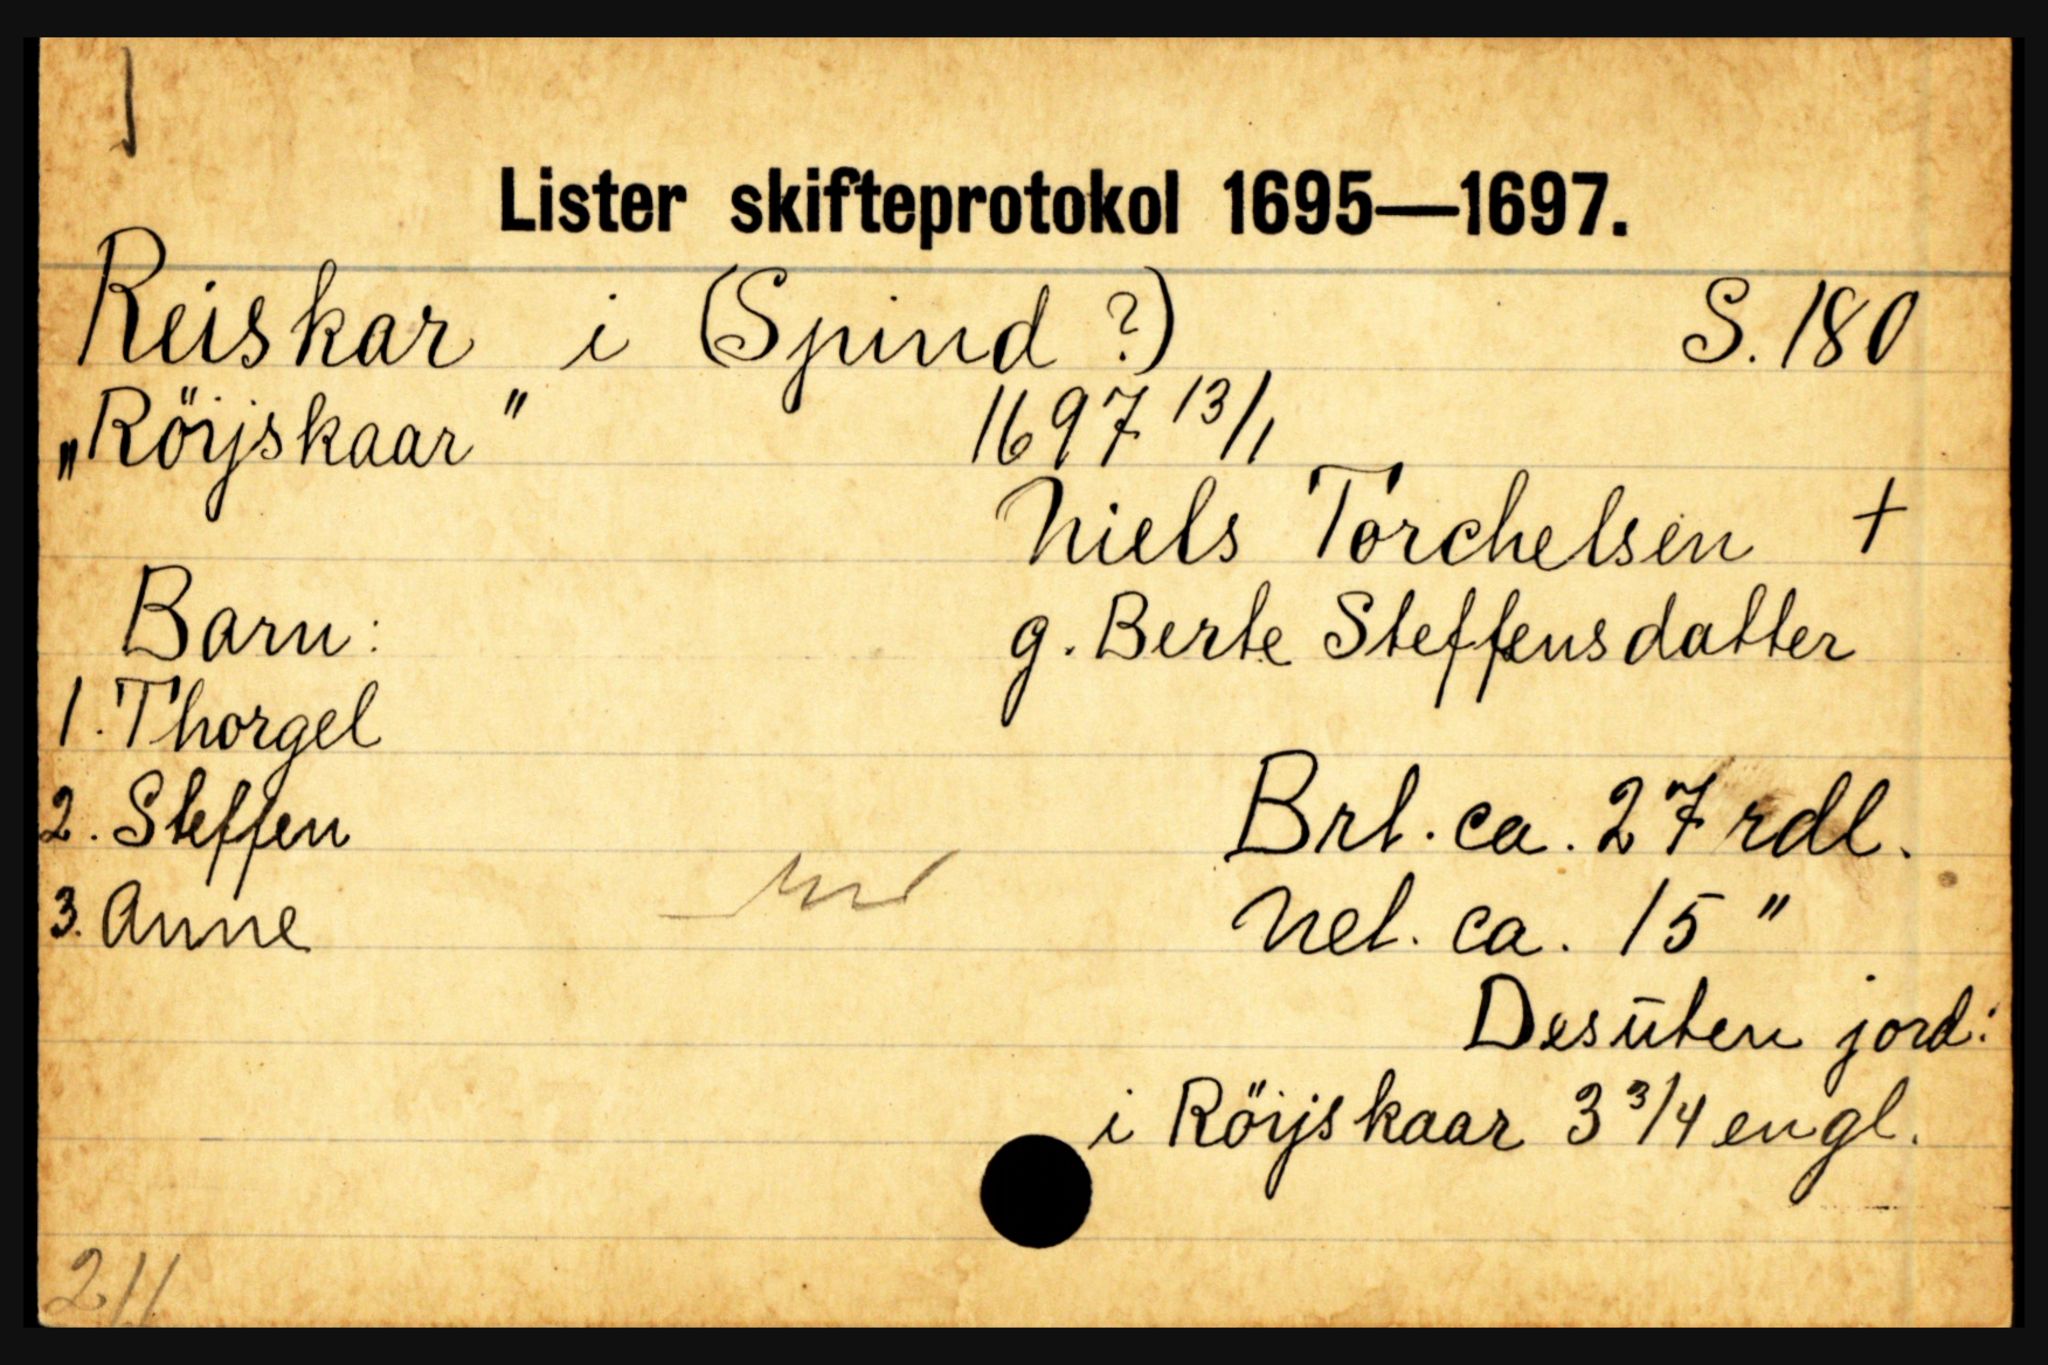 Lister skifteprotokol 1695—1697.
Reiskar i (Spind ?) S. 180
„Röijskaar" 1697 13/1
Niels Torchelsen +
Barn: g. Berte Steffensdatter
1. Thorgel
2. Steffen Brt. ca. 27 rdl.
3. Anne Net. ca. 15 "
Desūten jord:
i Röijskaar 3 3/4 engl.
211